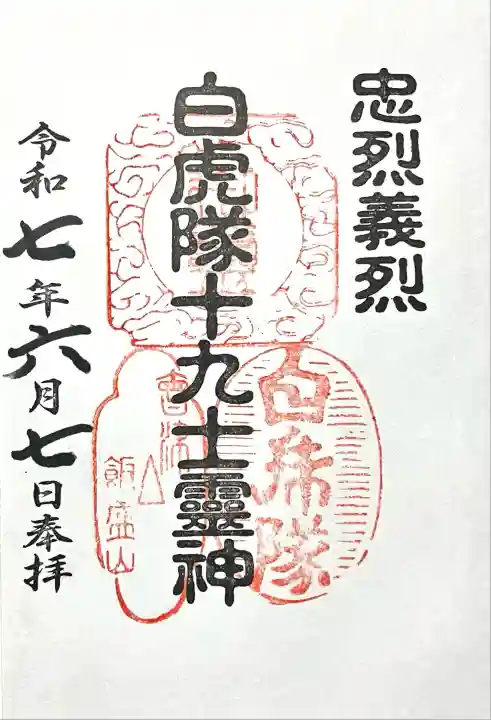 忠烈義烈
白虎隊十九士靈神
令和七年六月七日奉拝
白乕隊
會津
飯盛山